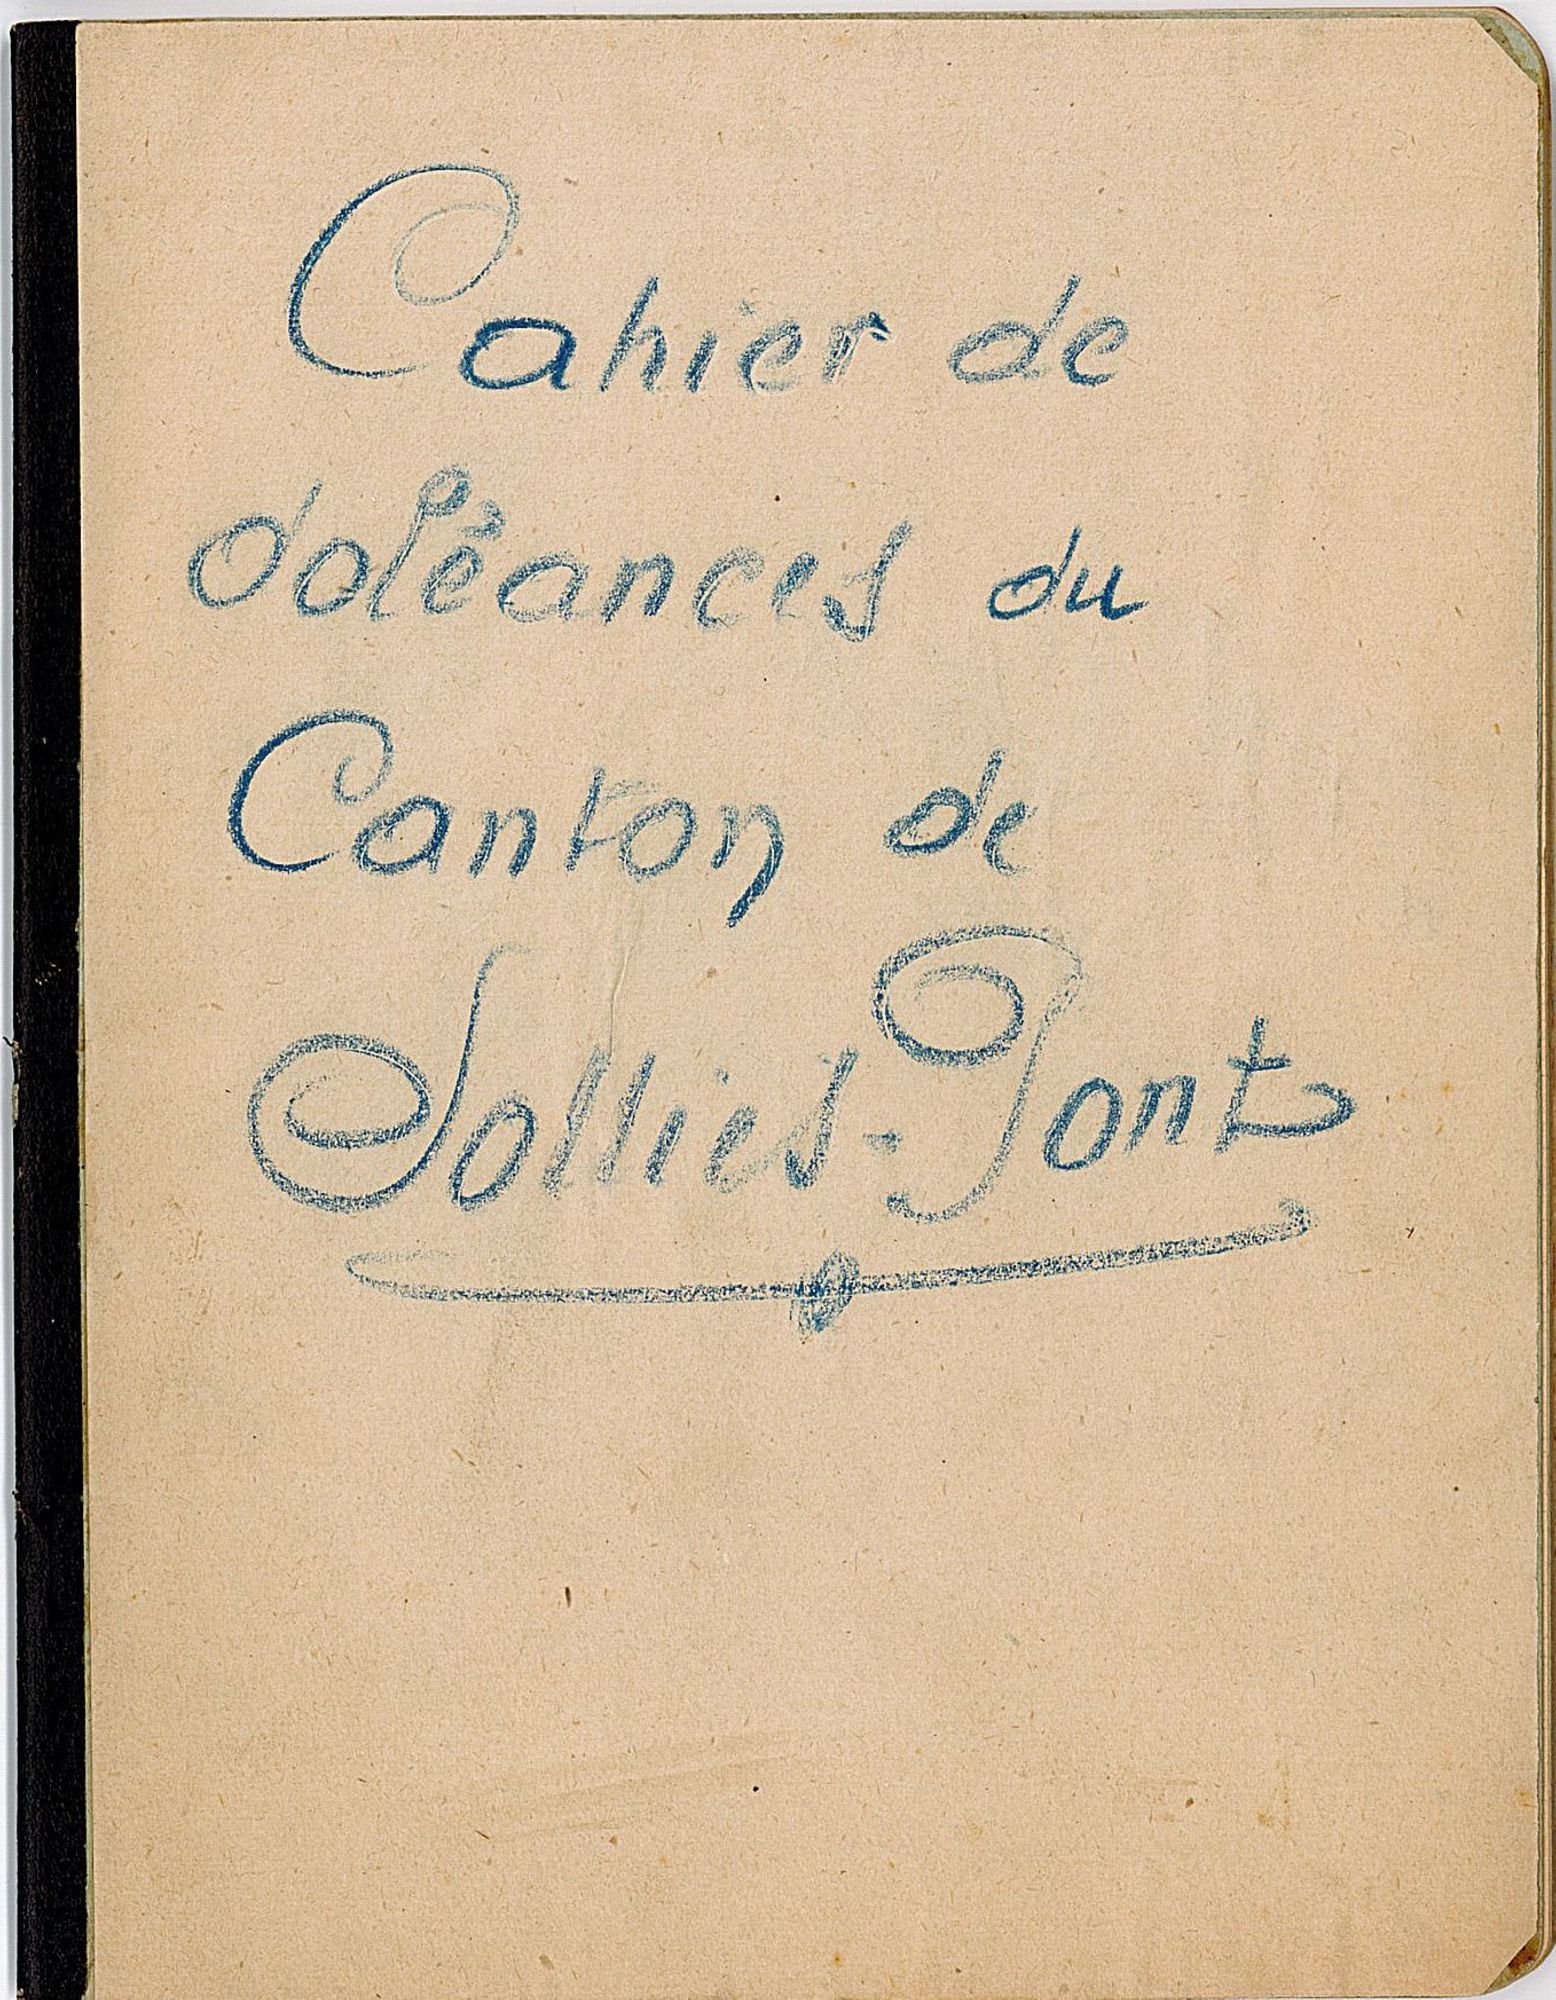 Cahier de
doléances du
Canton de
Solliès-Pont